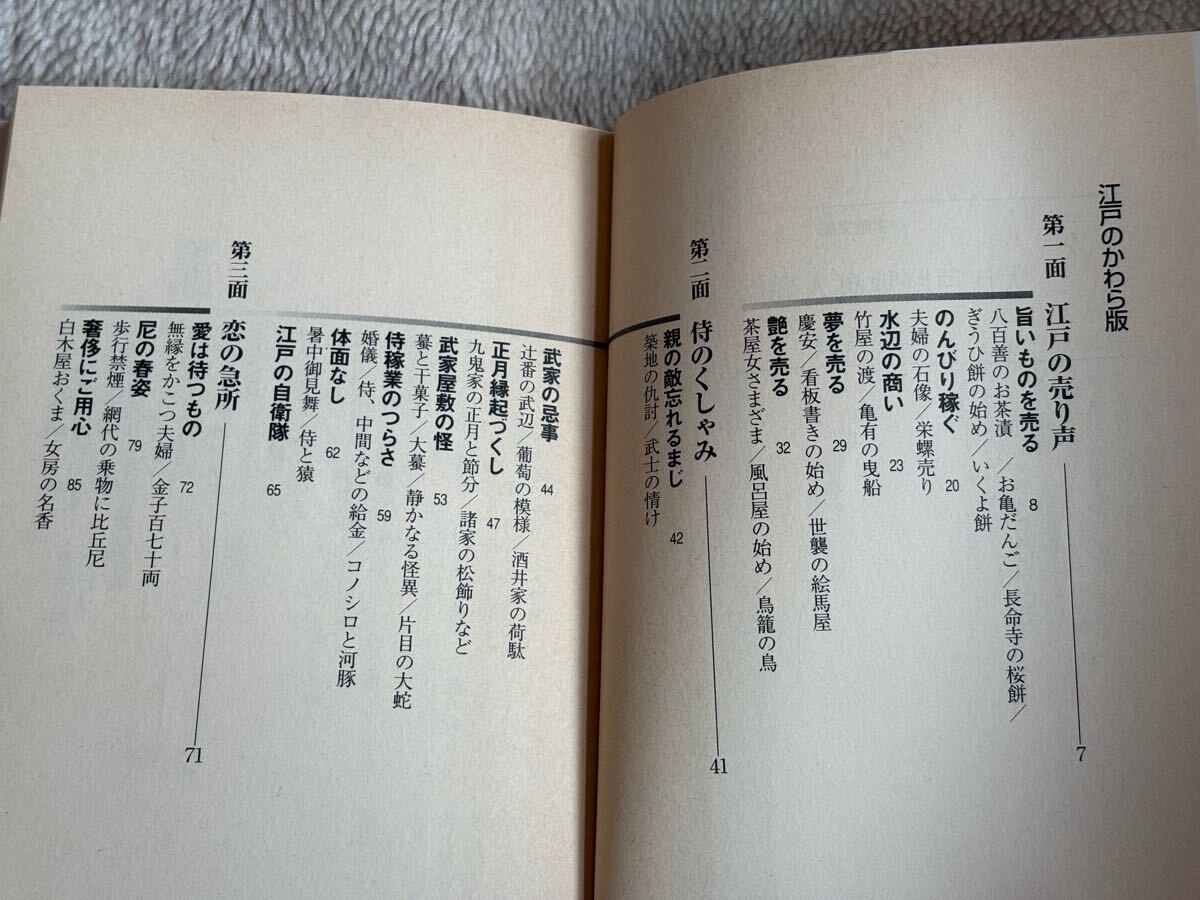 江戸のかわら版
第一面 江戸の売り声 7
旨いものを売る 8
八百善のお茶漬/お亀だんご/長命寺の桜餅/
ぎうひ餅の始め/いくよ餅
のんびり稼ぐ 20
夫婦の石像/栄螺売り
水辺の商い 23
竹屋の渡/亀有の曳船
夢を売る 29
慶安/看板書きの始め/世襲の絵馬屋
艶を売る 32
茶屋女さまざま/風呂屋の始め/鳥籠の鳥
第二面 侍のくしゃみ 41
親の敵忘れるまじ 42
築地の仇討/武士の情け
武家の忌事 44
辻番の武辺/葡萄の模様/酒井家の荷駄
正月縁起づくし 47
九鬼家の正月と節分/諸家の松飾りなど
武家屋敷の怪 53
蟇と干菓子/大蟇/静かなる怪異/片目の大蛇
侍稼業のつらさ 59
婚儀/侍、中間などの給金/コノシロと河豚
体面なし 62
暑中御見舞/侍と猿
江戸の自衛隊 65
第三面 恋の急所 71
愛は待つもの 72
無縁をかこつ夫婦/金子百七十両
尼の春姿 79
歩行禁煙/網代の乗物に比丘尼
奢侈にご用心 85
白木屋おくま/女房の名香